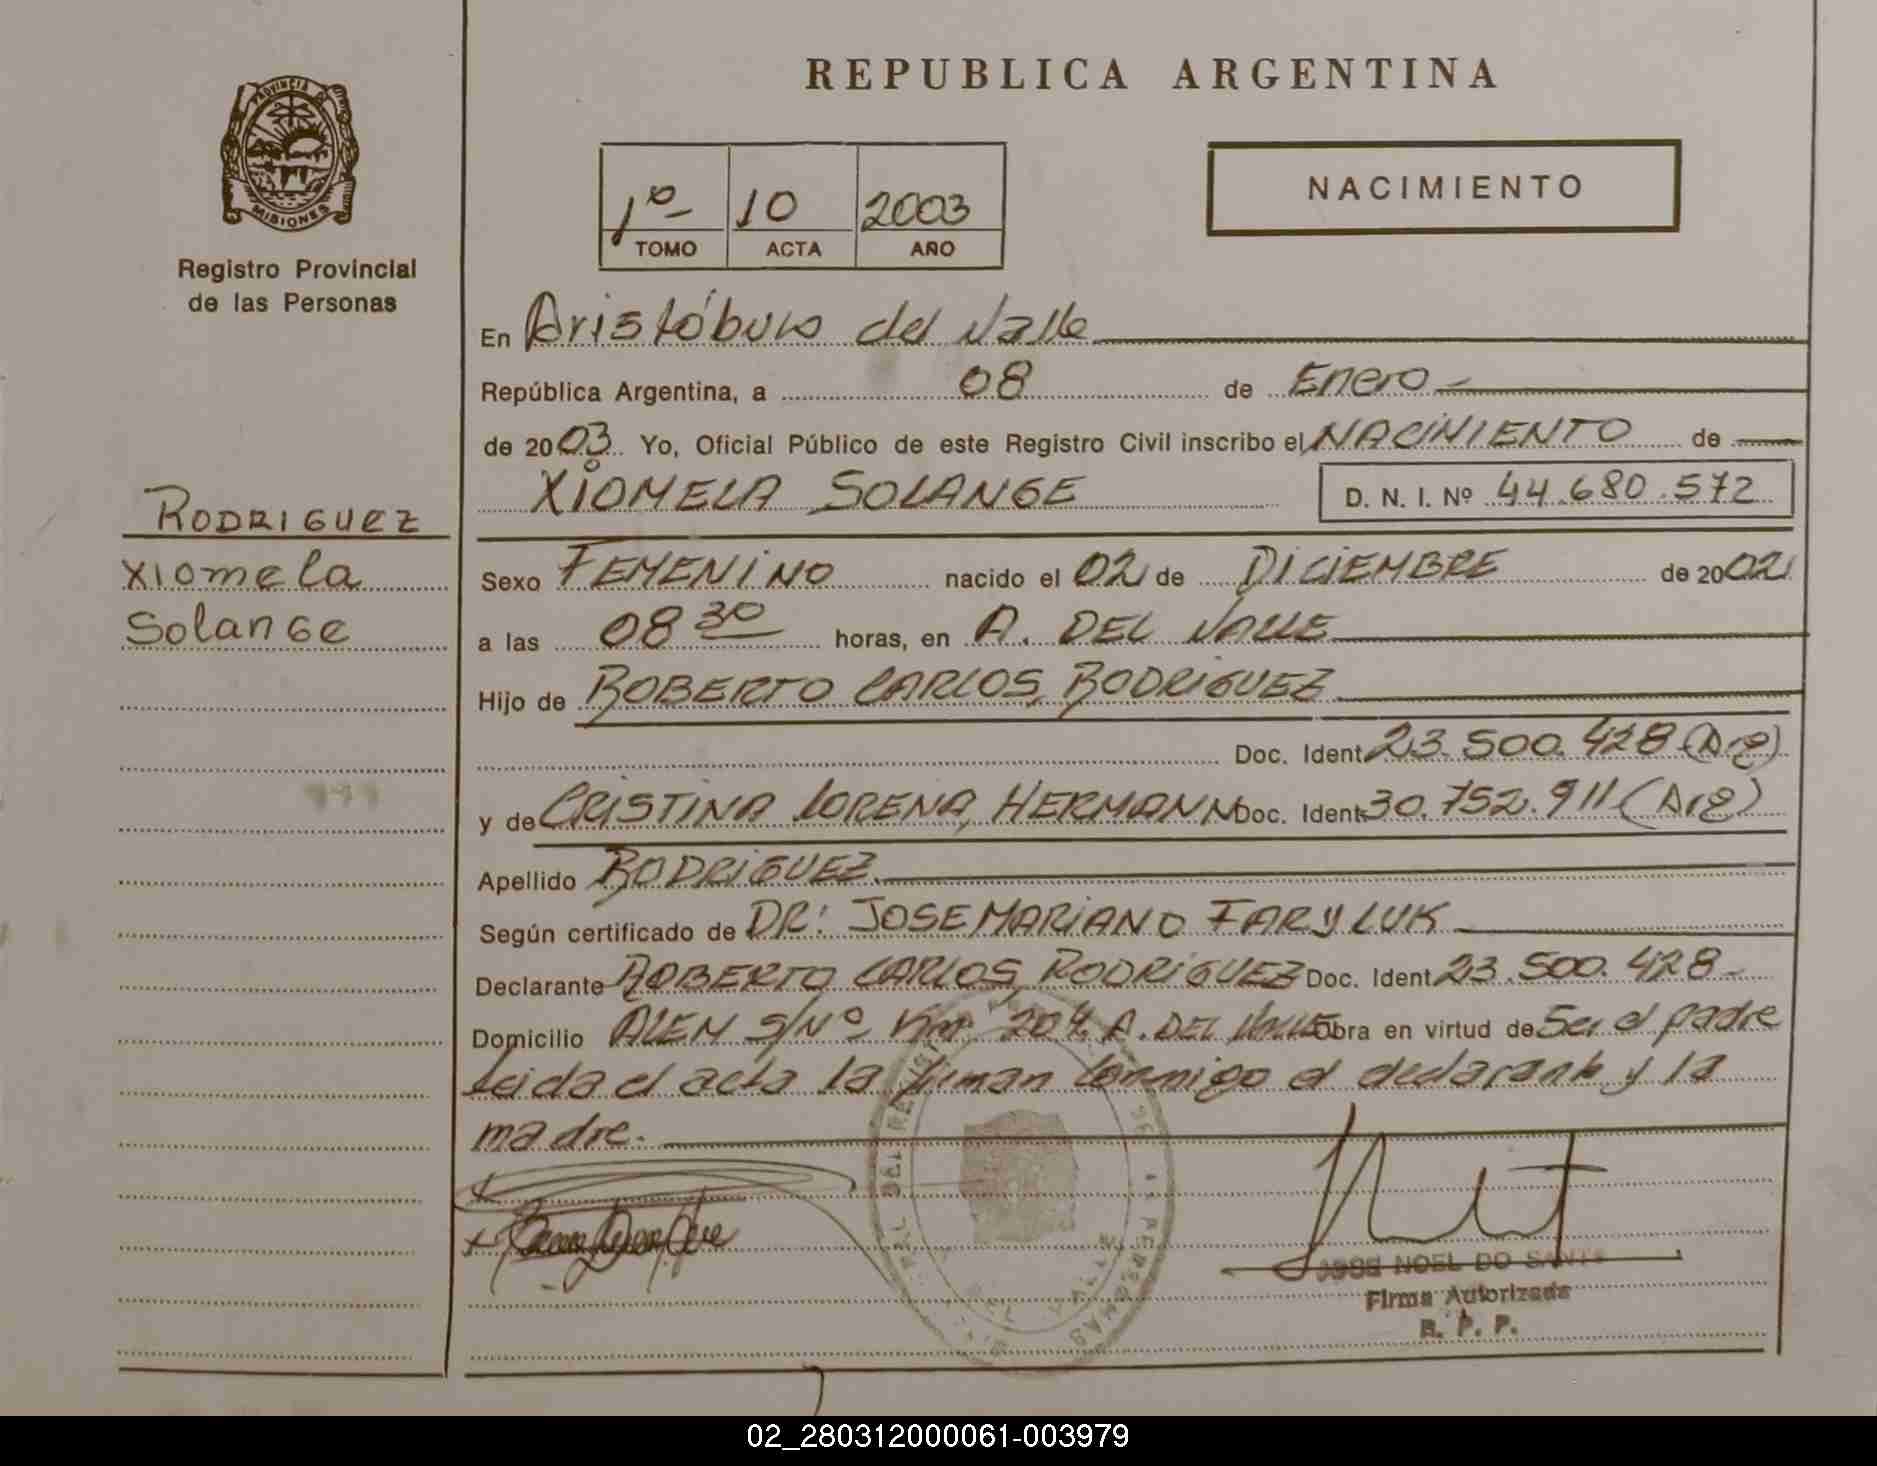 REPUBLICA ARGENTINA
PROVINCIA DE
MISIONES
Registro Provincial
de las Personas
1º 10 2003
TOMO ACTA AÑO
NACIMIENTO
En Aristóbulo del Valle
República Argentina, a 08 de Enero
de 2003 Yo, Oficial Público de este Registro Civil inscribo el NACIMIENTO de
XIOMELA SOLANGE D. N. I. Nº 44.680.572
RODRIGUEZ
Xiomela
Solange
Sexo FEMENINO nacido el 02 de DICIEMBRE de 2002
a las 08 30 horas, en A. DEL VALLE
Hijo de ROBERTO CARLOS RODRIGUEZ
Doc. Ident. 23.500.428 (Arg)
y de CRISTINA LORENA HERMANN Doc. Ident. 30.752.911 (Arg)
Apellido RODRIGUEZ
Según certificado de DR: JOSE MARIANO FARYLUK
Declarante ROBERTO CARLOS RODRIGUEZ Doc. Ident. 23.500.428
Domicilio ALEN S/Nº Km 204 A. DEL VALLE Obra en virtud de Ser el padre
leida el acta la firman conmigo el declarante y la
madre.
JOSE NOEL DO SANTS
Firma Autorizada
R. P. P.
02_280312000061-003979